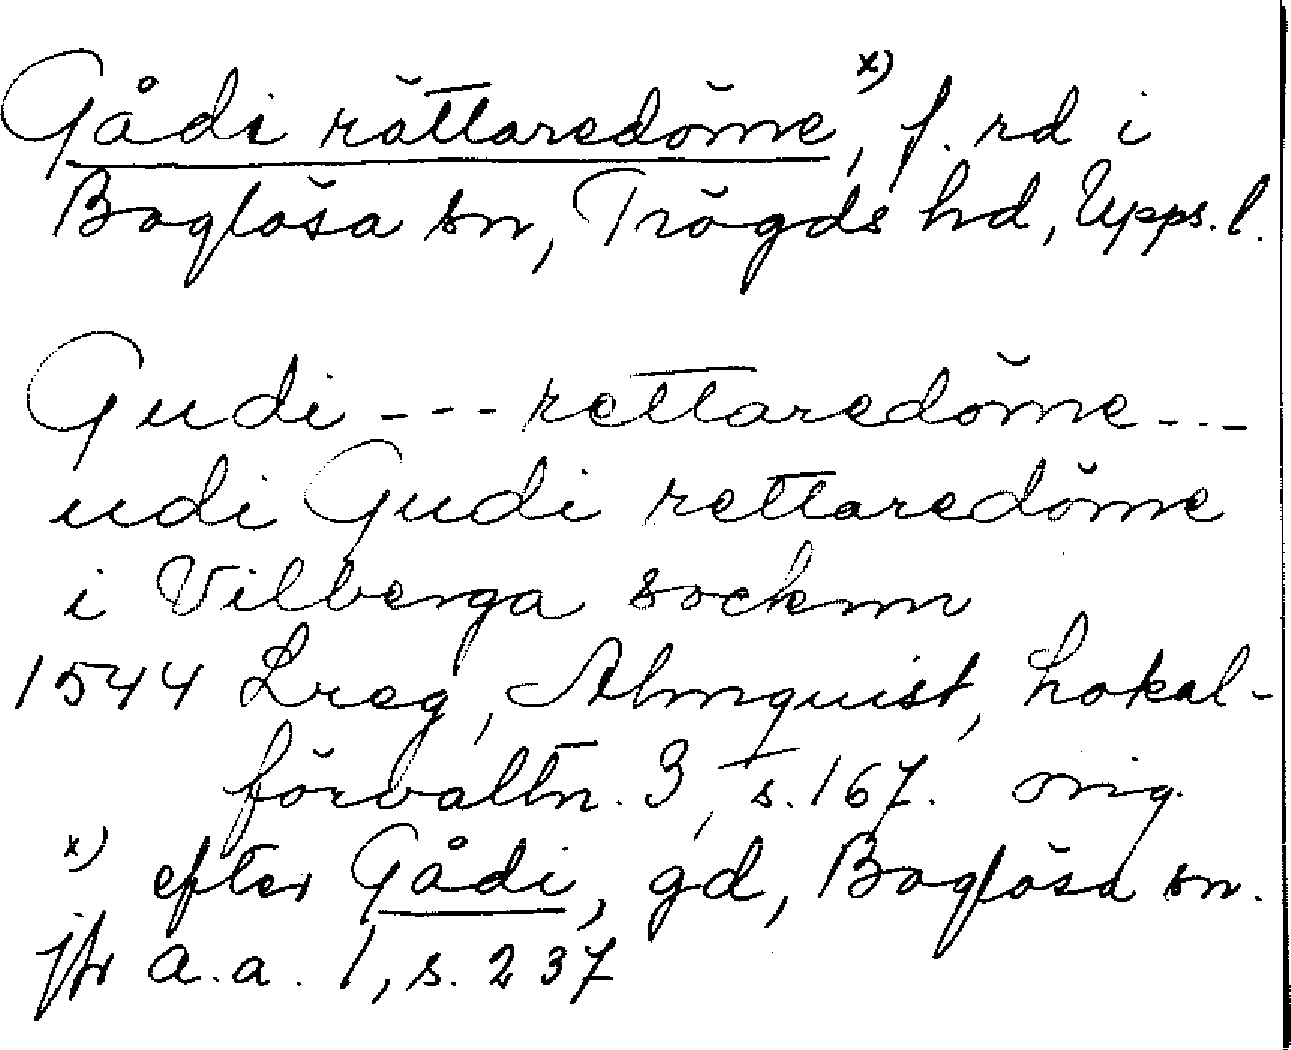 Gådi rättaredöme,x) f. rd i
Boglösa sn, Trögds hd, Upps. l.
Gudi --- rettaredöme ---
udi Gudi rettaredöme
i Vilberga socknn
1544 Lreg, Almquist, Lokal-
förvaltn. 3, s. 167. orig.
x) efter Gådi, gd, Boglösa sn.
jfr a.a. 1, s. 237